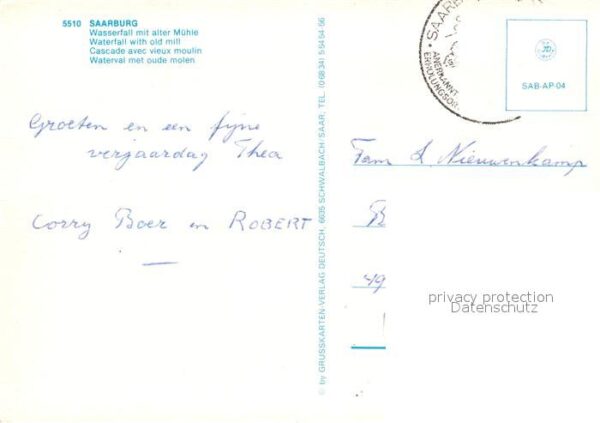 5510 SAARBURG
Wasserfall mit alter Mühle
Waterfall with old mill
Cascade avec vieux moulin
Waterval met oude molen
Groeten en een fijne
verjaardag Thea
Corry Boer en ROBERT
© by GRUSSKARTEN-VERLAG DEUTSCH, 6635 SCHWALBACH-SAAR, TEL. (06834) 55454-56
SAARB
ANERKANNT
ERHOLUNGSOR
SAB-AP-04
Fam L Nieuwenkamp
B
49
privacy protection
Datenschutz